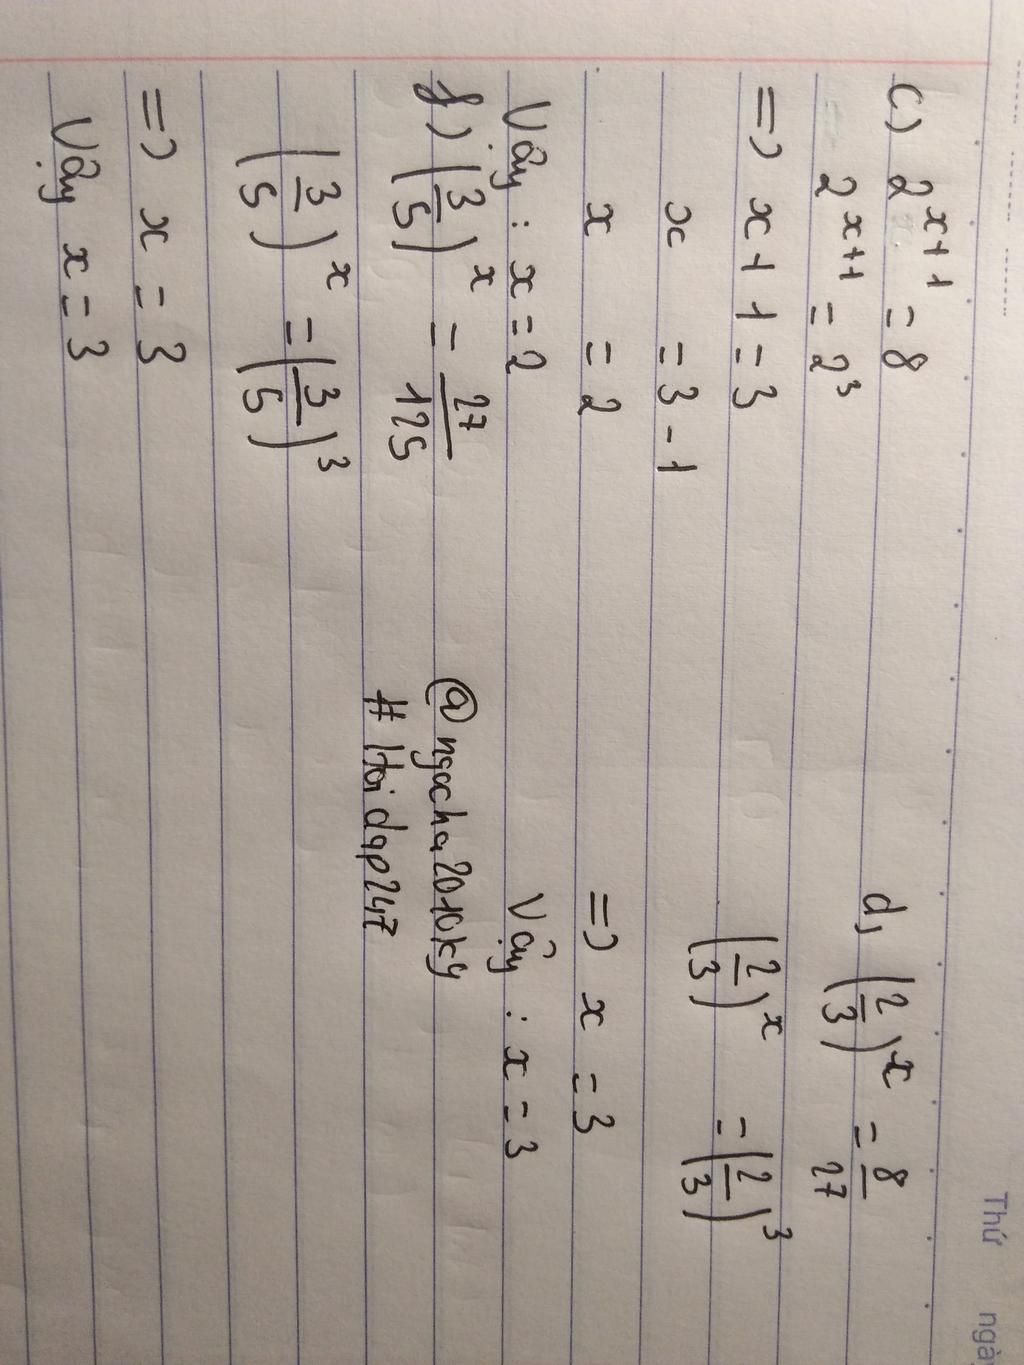 Thứ ngà
c) 2^{x+1} = 8
2^{x+1} = 2^3
=> x+1 = 3
x = 3-1
x = 2
Vậy : x = 2
d, (2/3)^x = 8/27
(2/3)^x = (2/3)^3
=> x = 3
Vậy : x = 3
f) (3/5)^x = 27/125
(3/5)^x = (3/5)^3
=> x = 3
Vậy x = 3
@ngocha2010ky
#Hoidap247